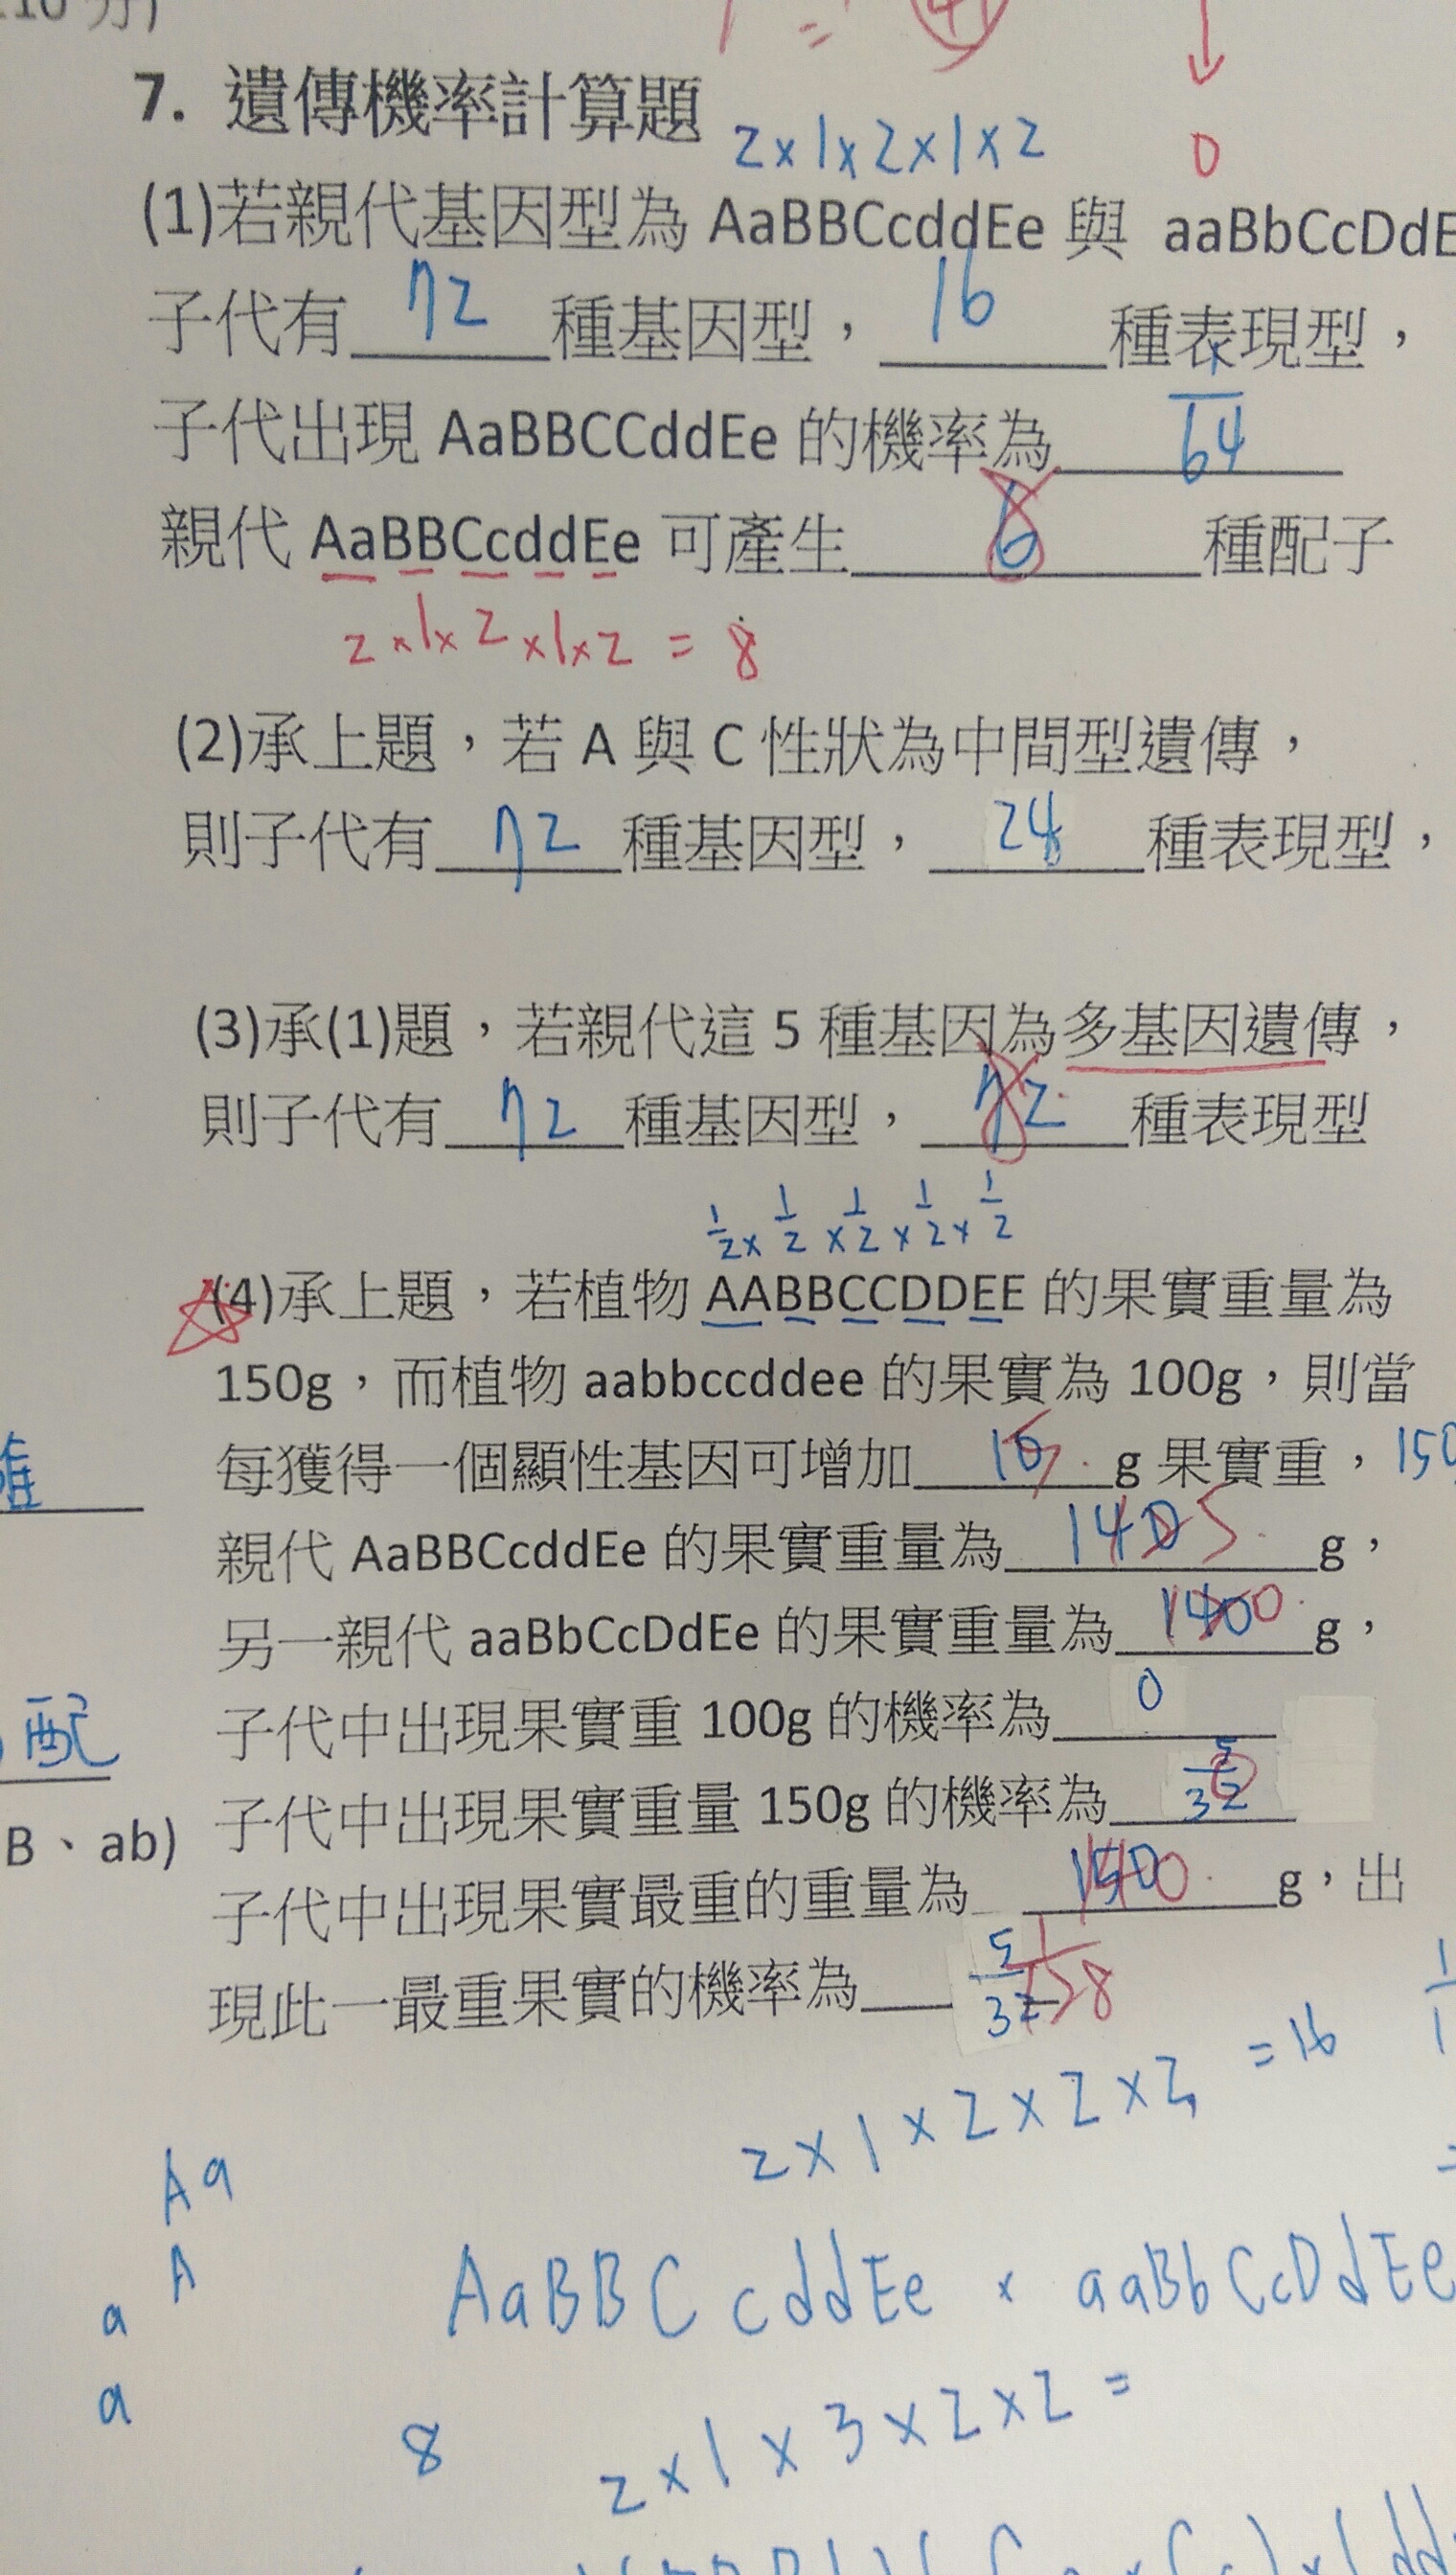 10 分)
7. 遺傳機率計算題
2x1x2x1x2
0
(1)若親代基因型為 AaBBCcddEe 與 aaBbCcDdE
子代有 72 種基因型，16 種表現型，
子代出現 AaBBCCddEe 的機率為 1/64
親代 AaBBCcddEe 可產生 種配子
2x1x2x1x2=8
(2)承上題，若 A 與 C 性狀為中間型遺傳，
則子代有 72 種基因型，24 種表現型，
(3)承(1)題，若親代這 5 種基因為多基因遺傳，
則子代有 72 種基因型，72 種表現型
1/2x1/2x1/2x1/2x1/2
(4)承上題，若植物 AABBCCDDEE 的果實重量為
150g，而植物 aabbccddee 的果實為 100g，則當
每獲得一個顯性基因可增加 10 5 g 果實重，150
親代 AaBBCcddEe 的果實重量為 140 5 g，
另一親代 aaBbCcDdEe 的果實重量為 140 0 g，
子代中出現果實重 100g 的機率為 0
子代中出現果實重量 150g 的機率為 5/32 0
子代中出現果實最重的重量為 150 140 g，出
現此一最重果實的機率為 5/32 1/128
配
B、ab)
2x1x2x2x2=16
Aa
A
a
a
AaBBCcddEe x aaBbCcDdEe
8
2x1x3x2x2=